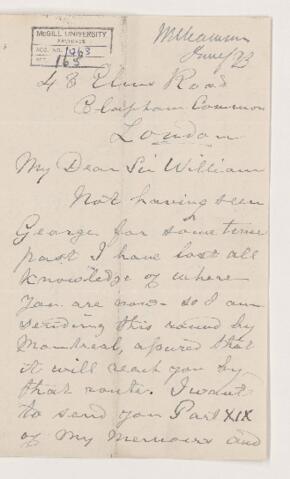 McGILL UNIVERSITY
ARCHIVES
ACC. NO. 1063
REF. 165
Williamson
June/93
43 Elms Road
Clapham Common
London
My Dear Sir William
Not having seen
George for some time
past I have lost all
knowledge of where
you are now - so I am
sending this round by
Montreal, assured that
it will reach you by
that route. I want
to send you Part XIX
of my Memoirs and